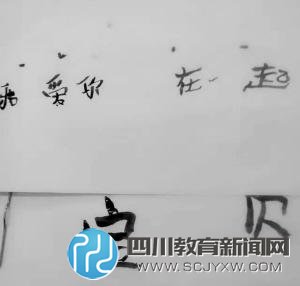 爱你 在一起
宝贝
四川教育新闻网
WWW.SCJYXW.COM